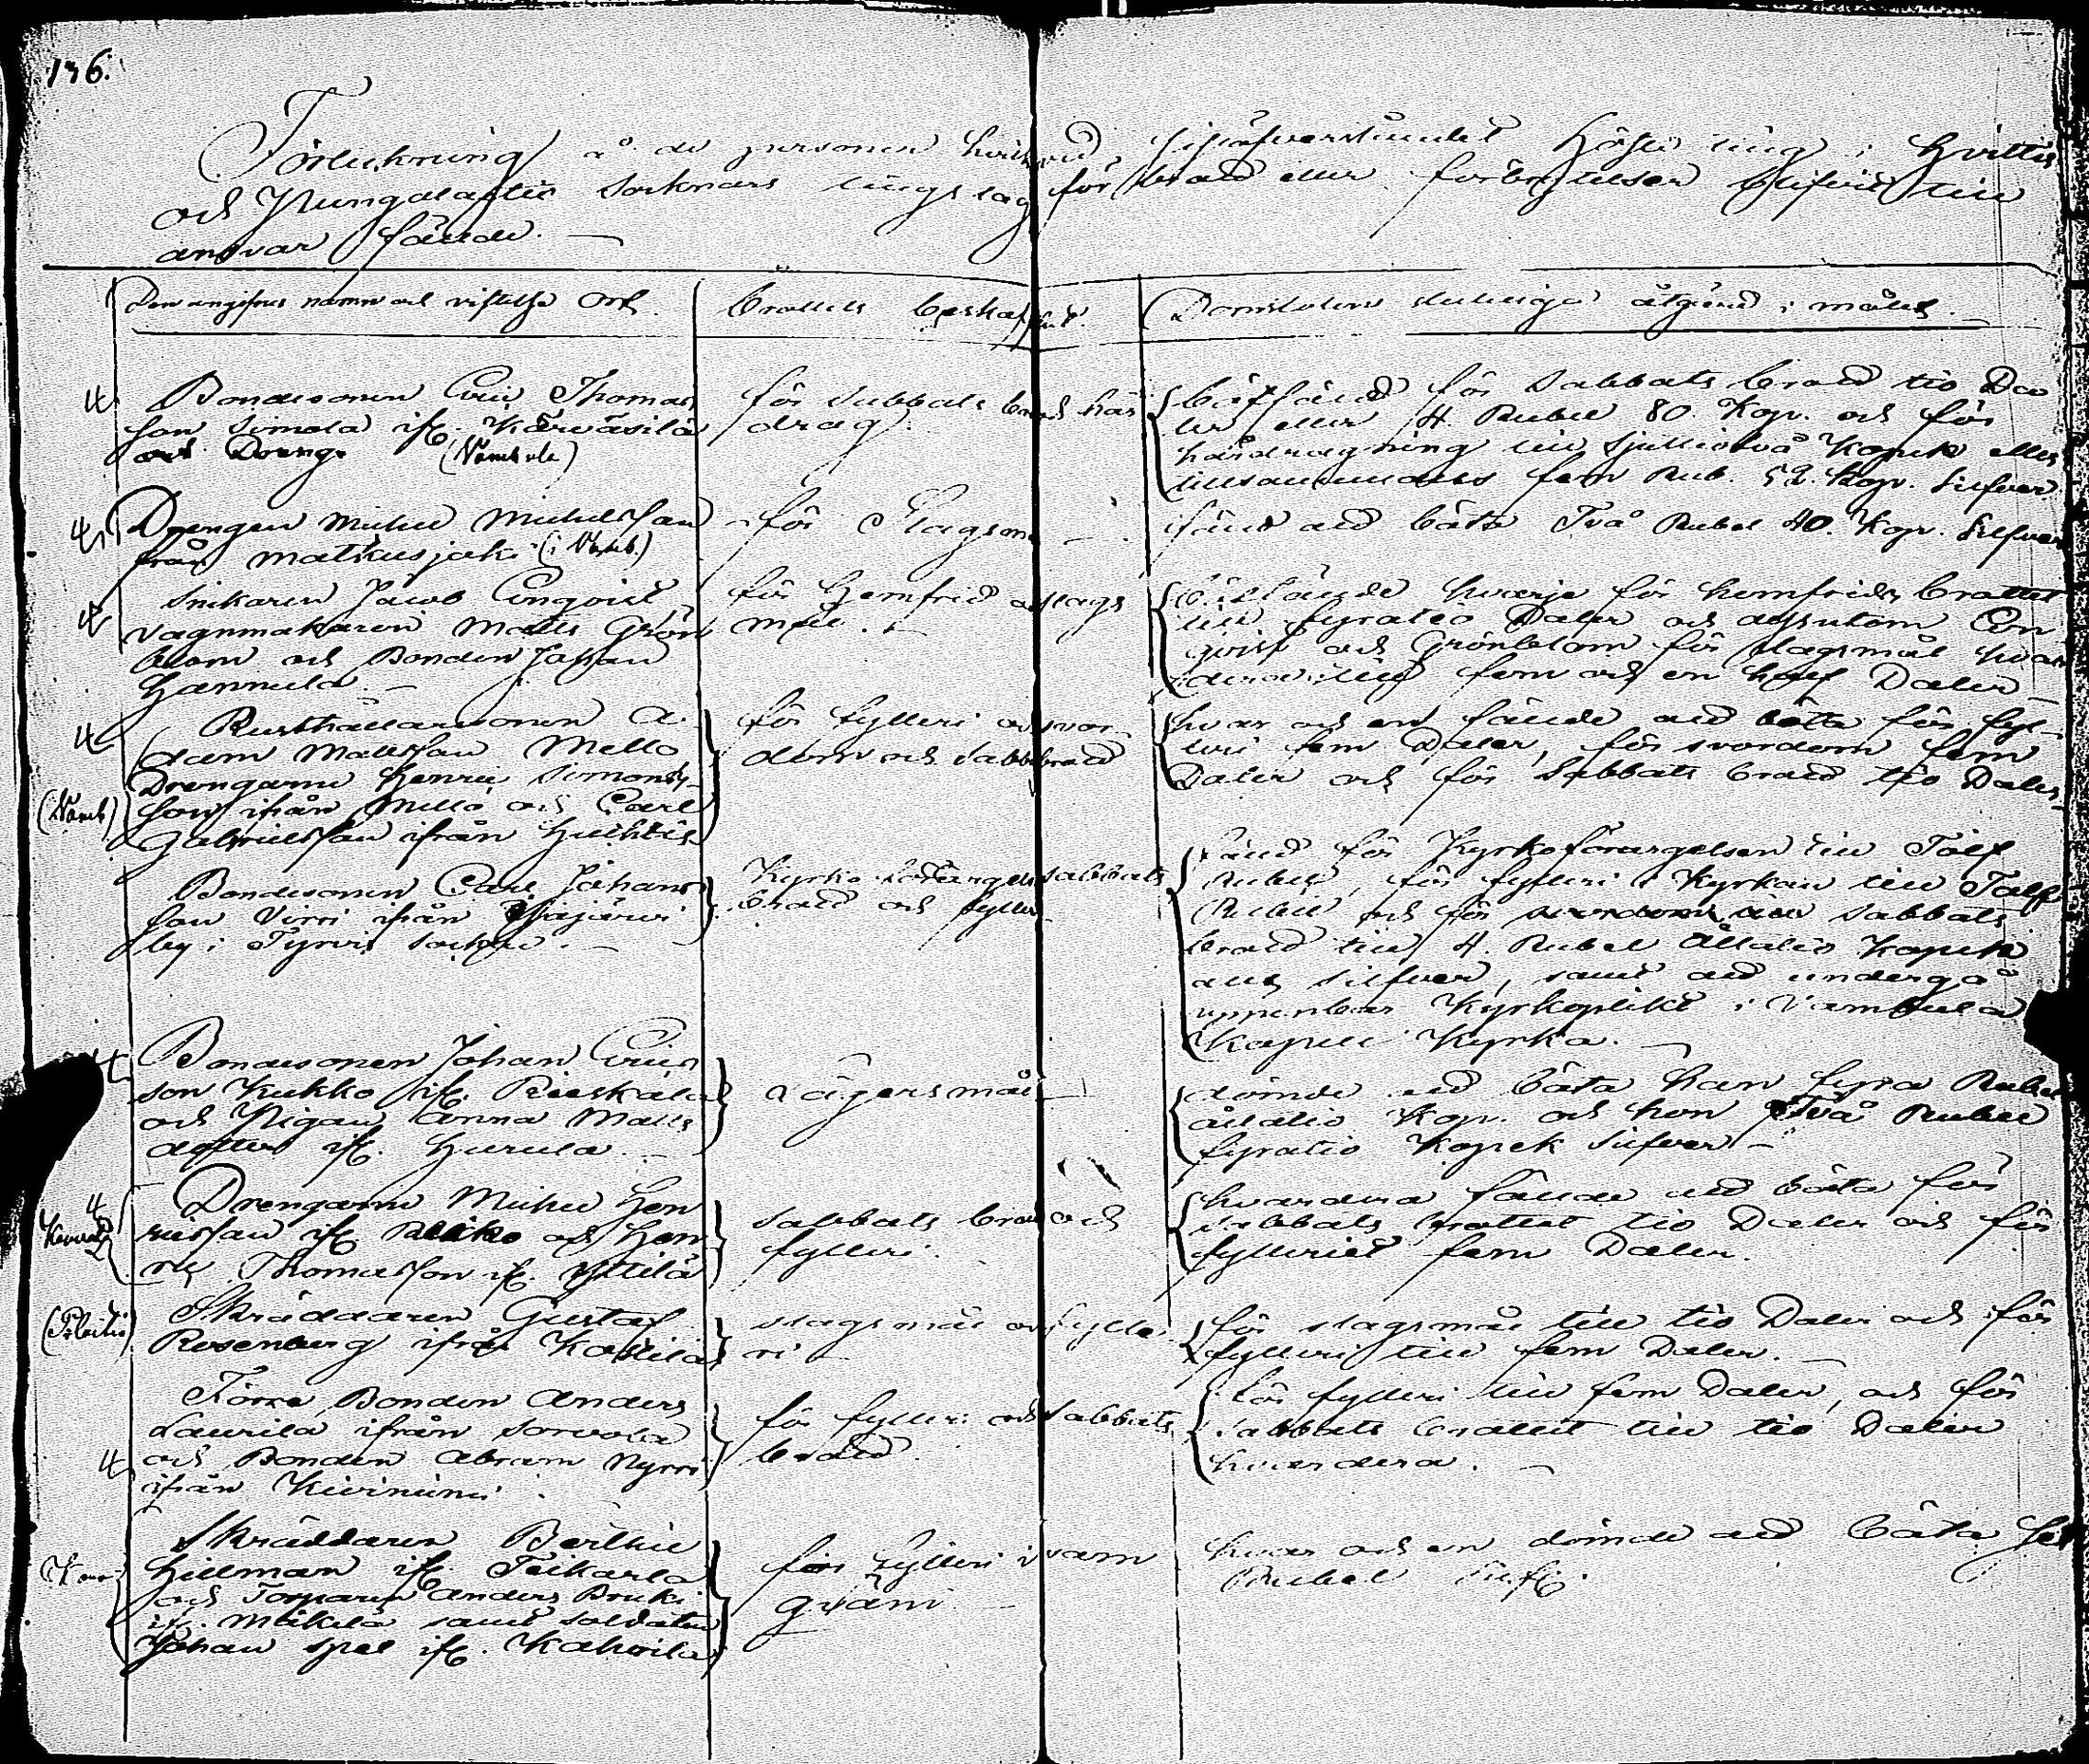 136.
Förteckning å de personer hvilka vid sistöfverståndet Höste ting i Hvittis
och Pungalaitio Soknars tingslag för brott eller förbrytelser blifvit till
ansvar fällde.
Den angifnes namn och vistelse Ort.
brottets beskaffenhet.
Domstolens slutliga åtgärd i målet.
Bondesonen Eric Thomas
son Simola ifr. Karvasila
och Dreng. (Vambula)
för Sabbats brott hår
drag.
bötfäld för Sabbats brott tio Da
ler eller 4. Rubel 80. Kop. och för
hårdragning till sjuttiotvå Kopek eller
tillsammans fem Rub. 52. Kop. Silfver
Drengen Michel Michelsson
från Matkusjoki (i Vamb.)
för Slagsm
fäld att böta Två Rubel 40. Kop. Silfver
Snikaren Jacob Enqvist
vagnmakaren Matts Grön
blom och Bonden Johan
Hannula
för Hemfrid o slags
mål.
bötfällde hvarje för hemfrids brottet
till fyratio Daler och dessutom En
qvist och Grönblom för slagsmål hvar
dera till fem och en half Daler
Rusthållaresonen A
dam Mattsson Mello
Drengarne Henric Simons
son ifrån Mello och Carl
Gabrielsson ifrån Huhtis
(Vamb)
för fylleri och svor
dom och Sabb brott
hvar och en fällde att böta för fyl
leri fem Daler, för svordom fem
Daler och för Sabbats brott tio Daler
Bondesonen Carl Johans
son Virri ifrån
by i Tyrvis Socken.
Kyrko förargelse Sabbats
brott och fylleri
fäld för Kyrkoförargelsen till Tolf
Rubel, för fylleri i Kyrkan till Tolf
Rubel och för Sabbats
brott till 4. Rubel Åttatio Kopek
allt Silfver, samt att undergå
uppenbar Kyrkoplikt i Vambula
Kapell Kyrka.
Bondesonen Johan Erics
son Kukko ifr. Rieskala
och Pigan Anna Matts
dotter ifr. Hurula.
Lägersmål
dömde att böta han fyra Rubel
åttatio Kop. och hon Två Rubel
fyratio Kopek Silfver
Drengarne Michel Hen
ricsson ifr. och Hen
ric Thomasson ifr. Yttilä
Sabbats brott och
fylleri.
hvardera fällde att böta för
Sabbats brottet tio Daler och för
fylleriet fem Daler.
Skräddaren Gustaf
Rosenberg ifrån
slagsmål och fylle
ri
för slagsmål till tio Daler och för
fylleri till fem Daler.
Förra Bonden Anders
Laurila ifrån Sorvola
och Bonden Abram Nyrri
ifrån Kiviniemi.
för fylleri och Sabbats
brott.
för fylleri till fem Daler, och för
Sabbats brottet till tio Daler
hvardera.
Skräddaren Berthil
Hillman ifr. Teikarla
och Torparen Anders
ifr. Mäkelä samt Soldaten
Johan Spel ifr. Kahoila
för fylleri i
hvar och en dömde att böta
Rubel Silf.